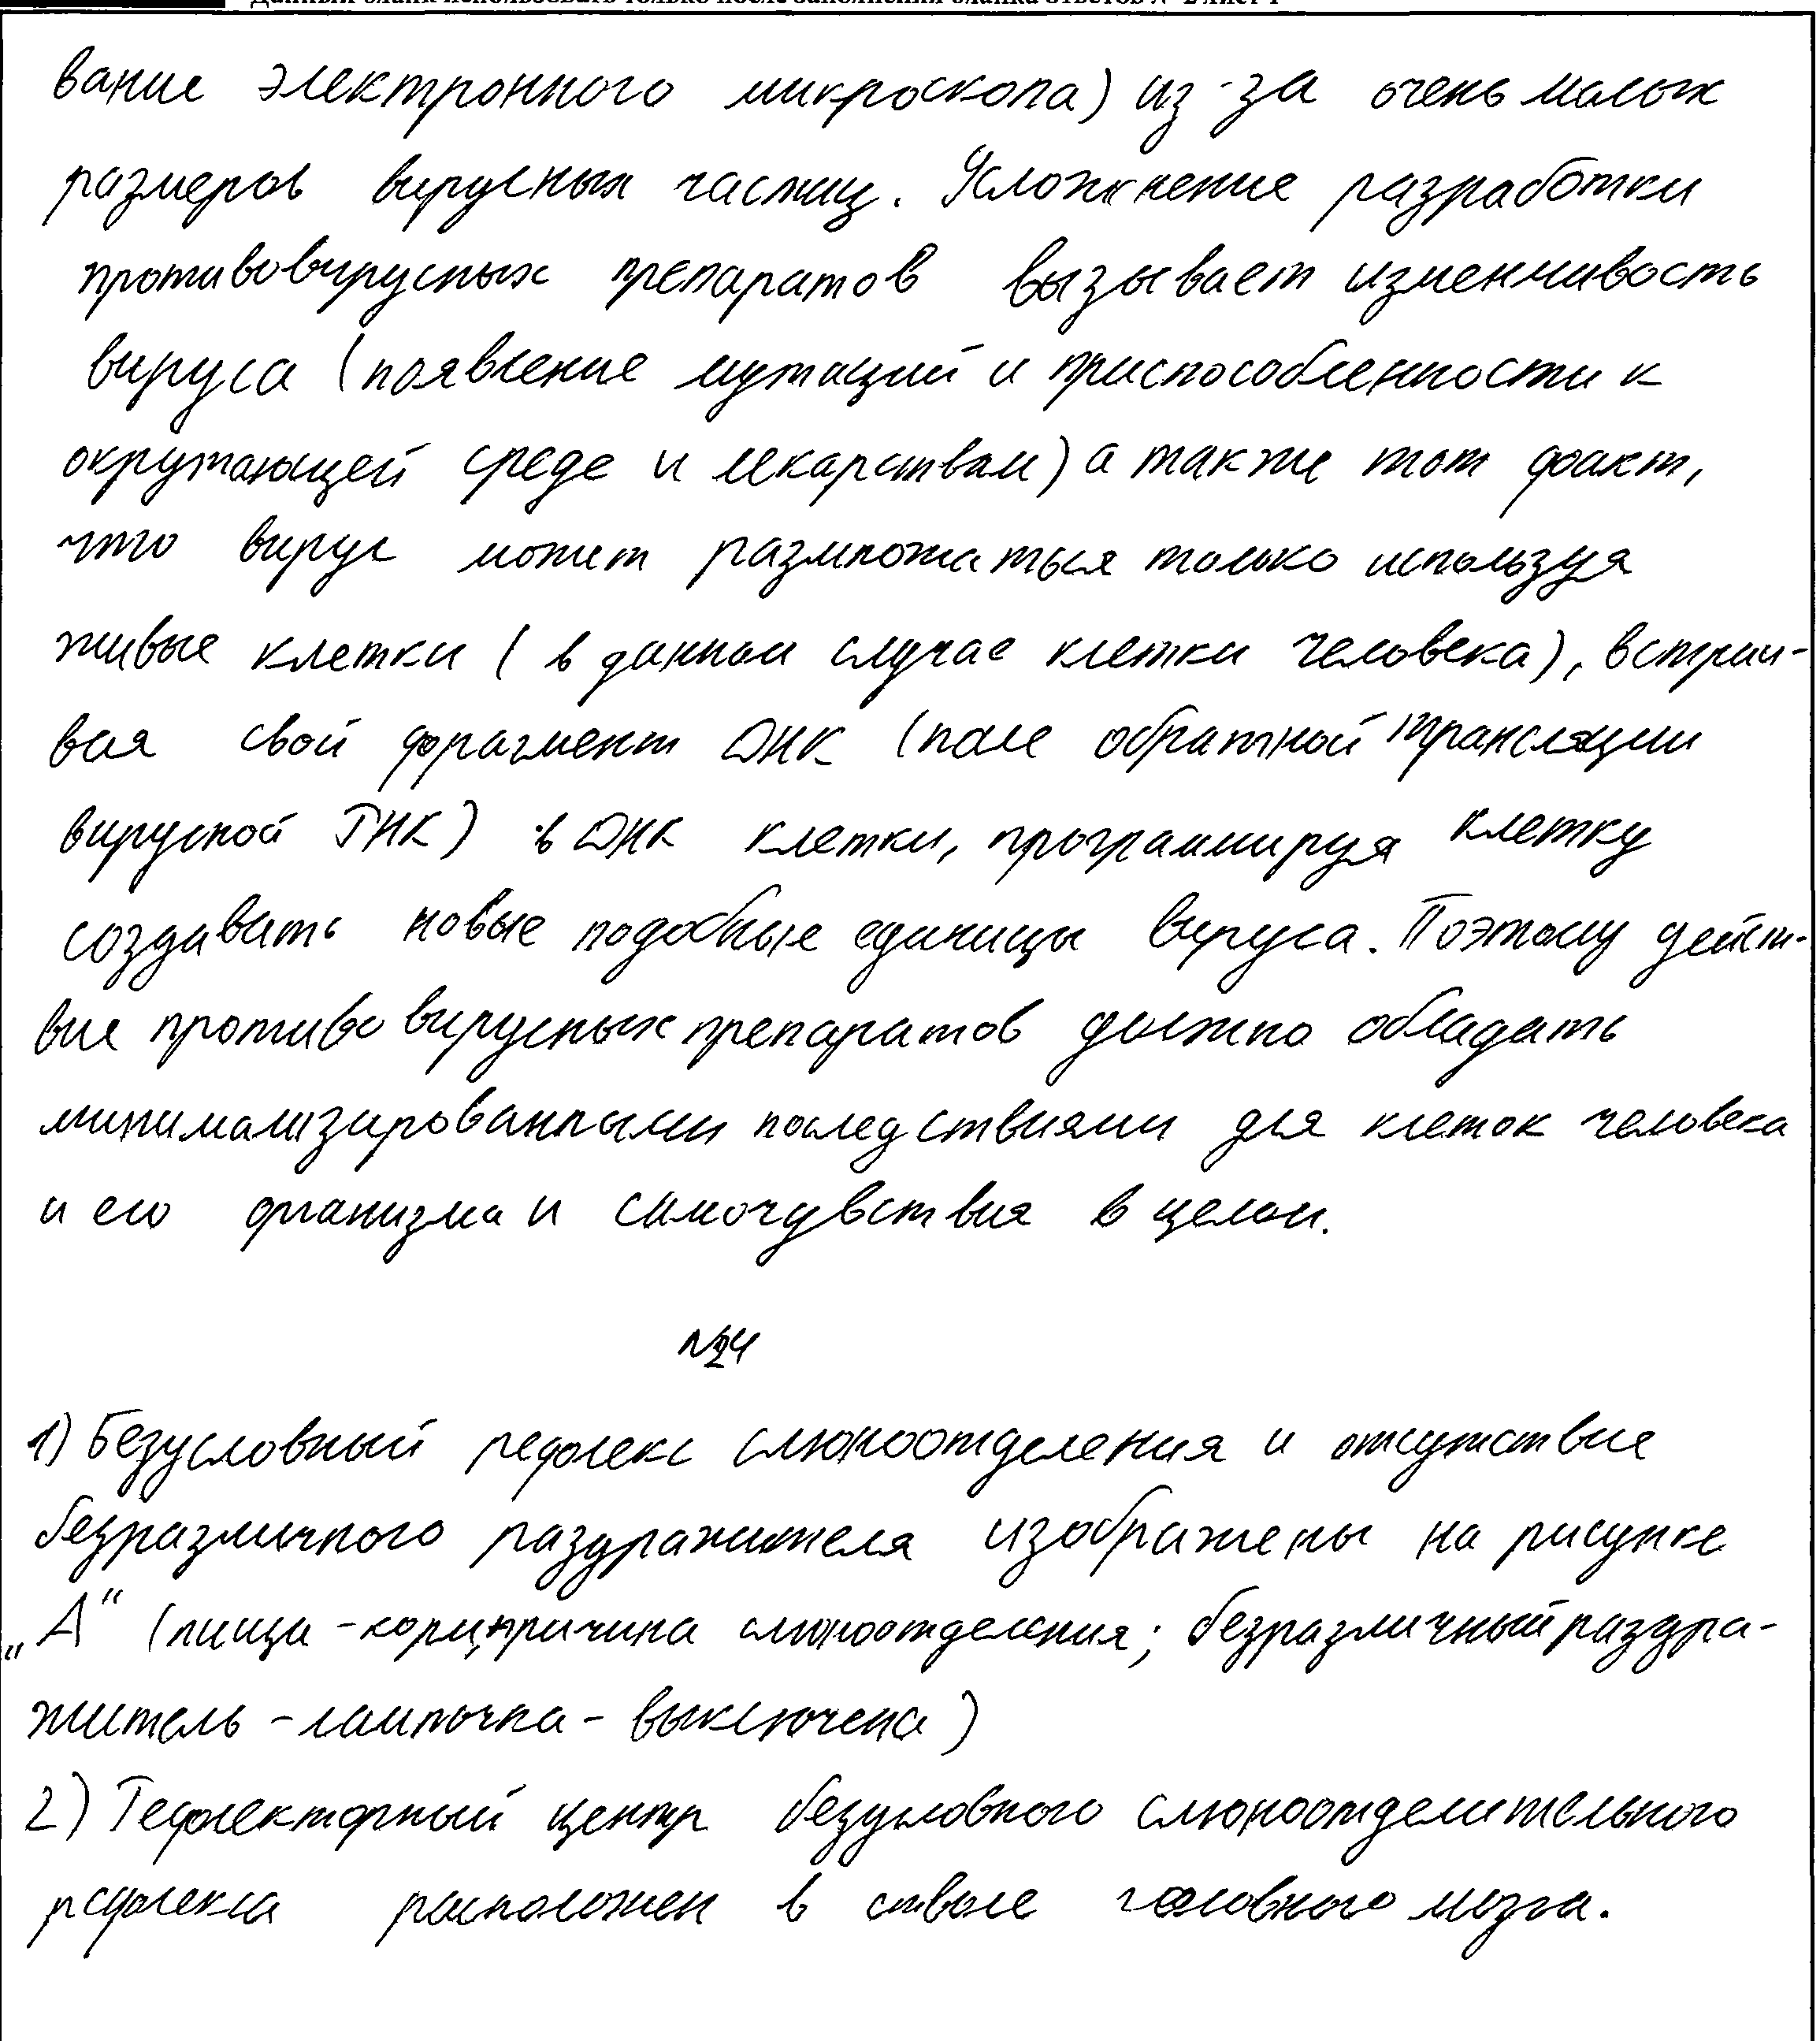 Данный бланк использовать только после заполнения бланка ответов № 2 лист 1
вание электронного микроскопа) из-за очень малых
размеров вирусных частиц. Усложнение разработки
противовирусных препаратов вызывает изменчивость
вируса (появление мутаций и приспособленности к
окружающей среде и лекарствам) а также тот факт,
что вирус может размножаться только используя
живые клетки (в данном случае клетки человека), встраи-
вая свой фрагмент ДНК (после обратной трансляции
вирусной РНК) в ДНК клетки, программируя клетку
создавать новые подобные единицы вируса. Поэтому дейст-
вие противовирусных препаратов должно обладать
минимализированными последствиями для клеток человека
и его организма и самочувствия в целом.
№24
1) Безусловный рефлекс слюноотделения и отсутствие
безразличного раздражителя изображены на рисунке
„А“ (пища - корм, причина слюноотделения; безразличный раздра-
житель - лампочка - выключена)
2) Рефлекторный центр безусловного слюноотделительного
рефлекса расположен в стволе головного мозга.